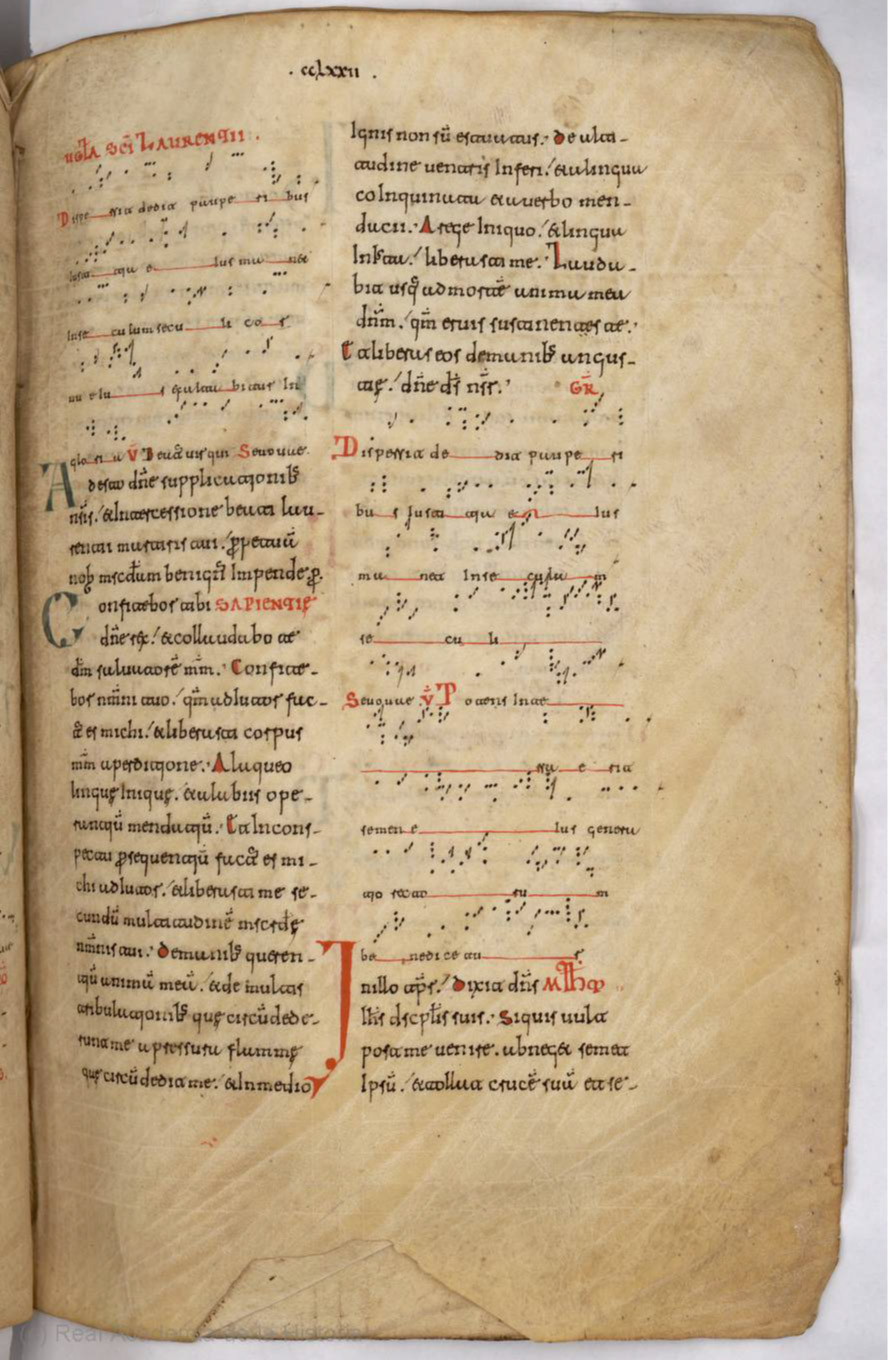 . cclxxii .
uigła sči laurenqii .
Dispersit dedit paupe ri bus
iusti tia e ius ma net
Inse culum secu li cor
nu e ius exaltabitur In
glo ri a v̄ Beatus uir qui Seuouae.
Adesto dñe supplicationib;
nr̄is. & intercessione beati lau-
rentii martiris tui. ꝑpetuā
nob mscdiam benigñ Impende. ꝑ.
Confitebor tibi SAPIENTIE
dñe rex. & collaudabo te
dm̄ saluatorē mm̄. Confite-
bor nm̄ni tuo. qm̄ adiutor fac-
t; es michi. & liberasti corpus
mm̄ a perditione. A laqueo
linguę Inique. & a labiis ope-
rantiū mendatiū. Et Incons-
pectu ꝑsequentiū fact; es mi-
chi adiutor. & liberasti me se-
cundū multitudinē mscdę
nm̄nis tui. De manib; queren-
tiū animā meā. & de multis
tribulationib; quę circūdede-
runt me a pressura flammę
quę circūdedit me. & In medio
Ignis non sū estuatus. De alti-
tudine uentris Inferi. & a lingua
coInquinata & a uerbo men-
dacii. A rege Iniquo. & lingua
Iniusta. liberasti me. Lauda-
bit usq; ad mortē anima mea
dñm. qm̄ eruis sustinentes te.
Et liberas eos de manib; angus-
tię. dñe ds̄ nr̄. GR̄
Dispersit de dit paupe ri
bu s Justi tia e ius
ma net Inse culu m
se cu li
Seuouae v̄ Potens Inte
rra e rit
semen e ius genera
tio recto ru m
be nedice tu r
Jnillo tp̄r. Dixit dñs MTHꝊ
Ihs̄ discplis suis. Siquis uult
post me uenire. abneget semet
Ipsū. & tollat crucē suā et se-